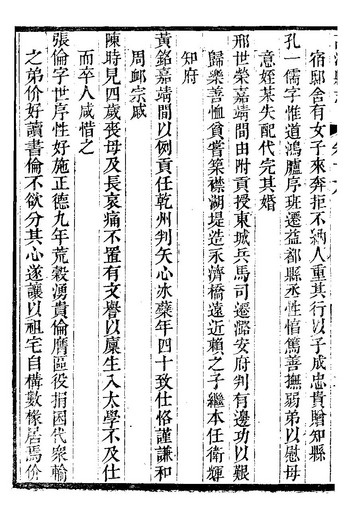 宿邸舍有女子來奔拒不納人重其行以子成忠貴贈知縣
孔一儒字惟道鴻臚序班遷益都縣丞性惇篤善撫弱弟以慰母
意姪某失配代完其婚
邢世榮嘉靖間由附貢授東城兵馬司遷潞安府判有邊功以艱
歸樂善恤貧嘗築襟湖堤造承濟橋遠近賴之子繼本任衛輝
知府
黃銘嘉靖間以例貢任乾州判矢心氷蘗年四十致仕恪謹謙和
周卹宗戚
陳時見四歲喪母及長哀痛不置有文譽以廩生入太學不及仕
而卒人咸惜之
張倫字世序性好施正德九年荒穀湧貴倫膺區役捐囷代衆輸
之弟价好讀書倫不欲分其心遂讓以祖宅自構數椽居焉价